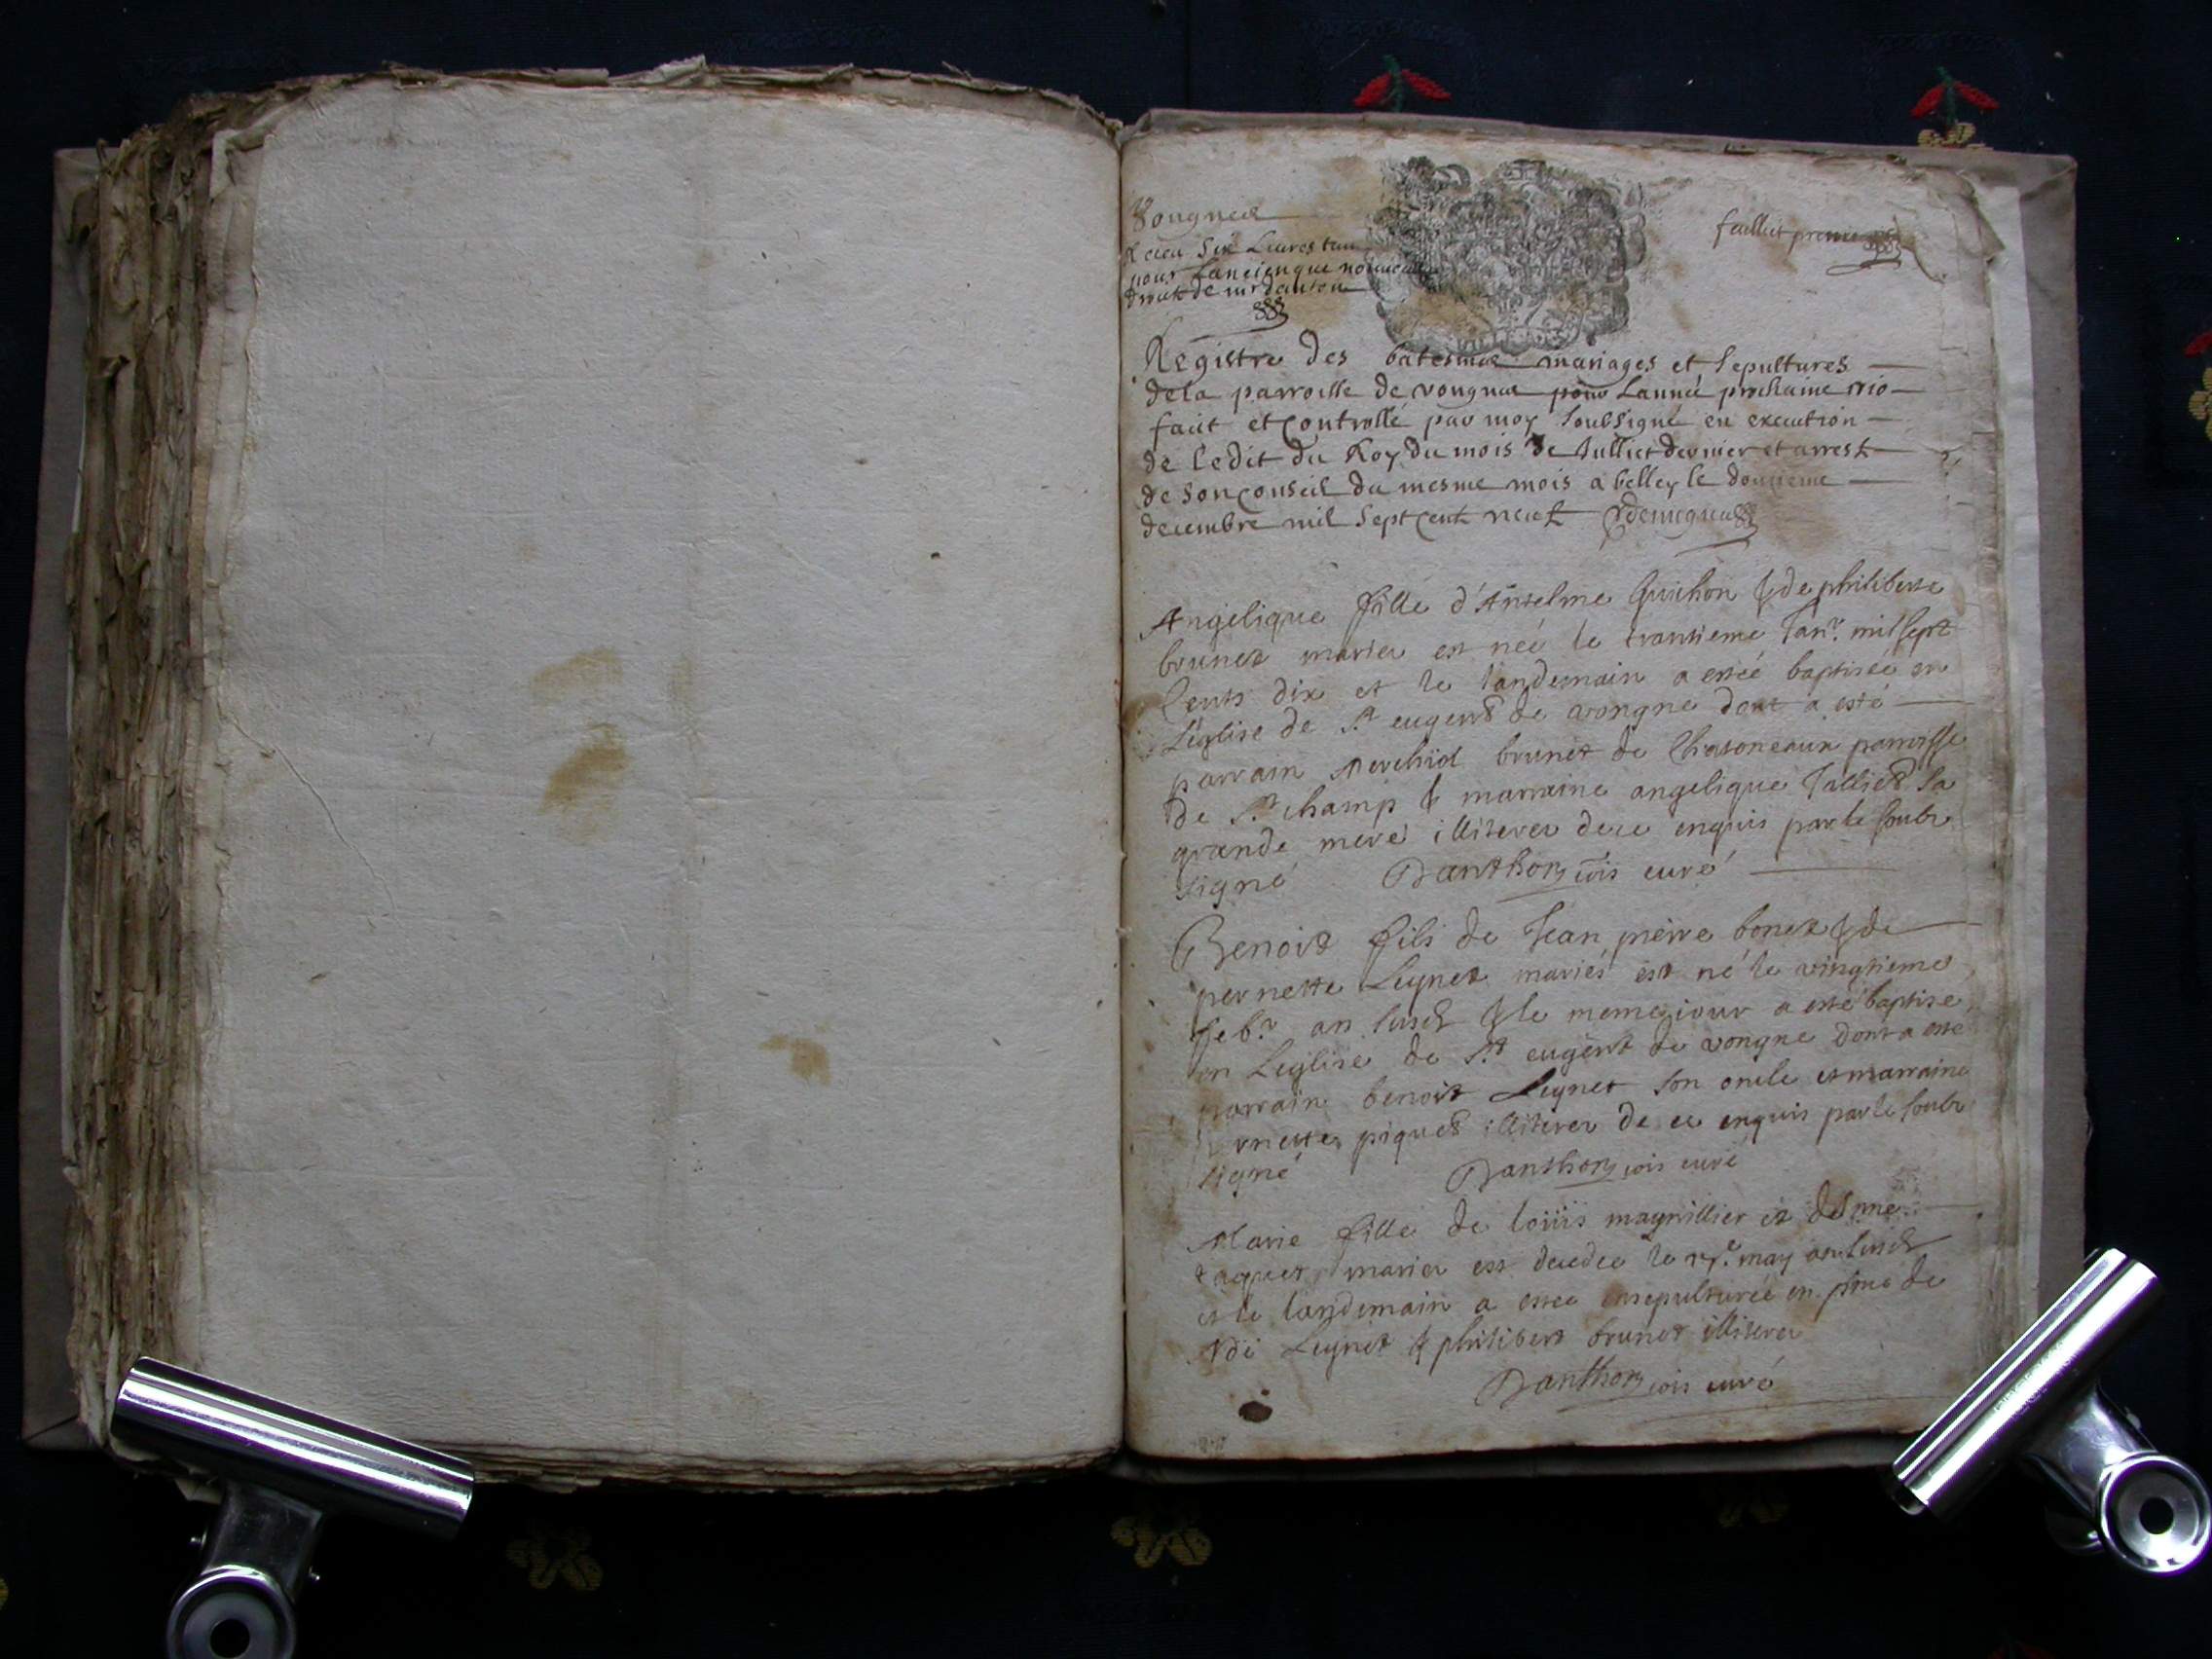 Vongnes
Receu Six Livres tant
pour Lancien que nouveau
droit de mr danton
feulliet premier
Registre des batesmes mariages et Sepultures
dela parroisse de vongnes pour Lannée prochaine 1710
fait et Controllé par moy Soubsigné en execution
de ledit du Roy du mois de Julliet dernier et arrest
de Son Conseil du mesme mois a belley le douzieme
decembre mil Sept Cent neuf
Angelique fille d'Anselme Guichon & de philiberte
brunet mariez est née le trantieme Janr. mil sept
Cents dix et le landemain a estée baptisée en
L'église de St eugent de vongne dont a esté
parrain Merchiol brunet de Chatoneaux parroisse
de St champ & marraine angelique Jalliet Sa
grande mere illiterez de ce enquis par le soubs
signé Danthon curé
Benoit fils de Jean pierre bonet & de
pernette Leynet mariés est né le vingtieme
febr. an susd & le meme jour a esté baptisé
en Leglise de St eugent de vongne dont a esté
parrain benoit Leynet son oncle et marraine
piquet illiterez de ce enquis par le soubs
signé Danthon curé
Marie fille de loüis magnillier et
mariez est decedee le may an susd
et le landemain a estee ensepulturée en pnce de
Leynet & philibert brunet illiterez
Danthon curé